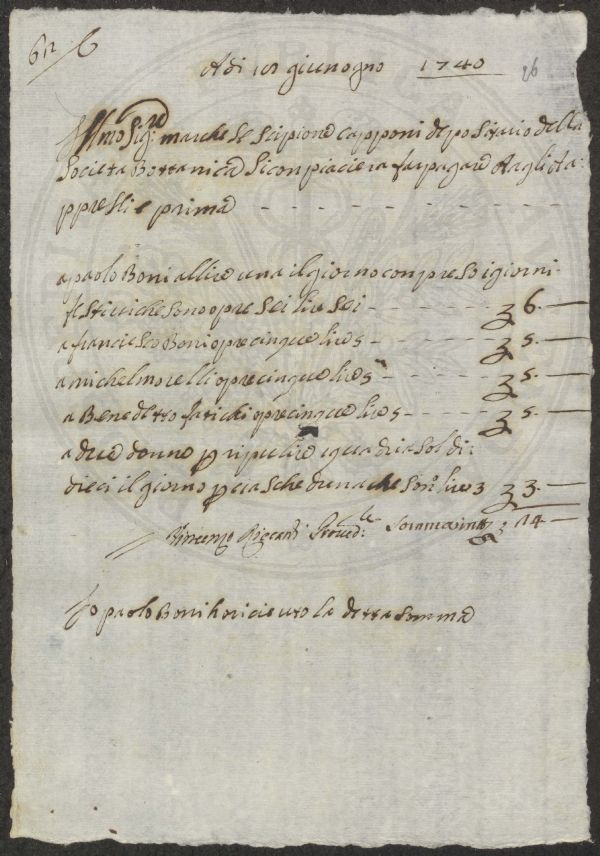 612 / 6
Adi 18 giunogno 1740
26
Illmo Sig.re marchese Scipione Capponi depositario della
Società Bottanica Si conpiacierà far pagare Aagli Ia:
ppresti e prima
a paolo Boni allire una il giorno conpresi i giorni
festivi che sono opre sei lire sei 6.
a franciesco Boni opre cinque lire 5 5.
a michel morelli opre cinque lire 5 5.
a Benedetto fatichi opre cinque lire 5 5.
a due donne p ripulire i quadri a soldi
dieci il giorno p ciascheduna che son lire 3 3.
Vincenzo Somma 24
Io paolo Boni ho riceuto la detta somma